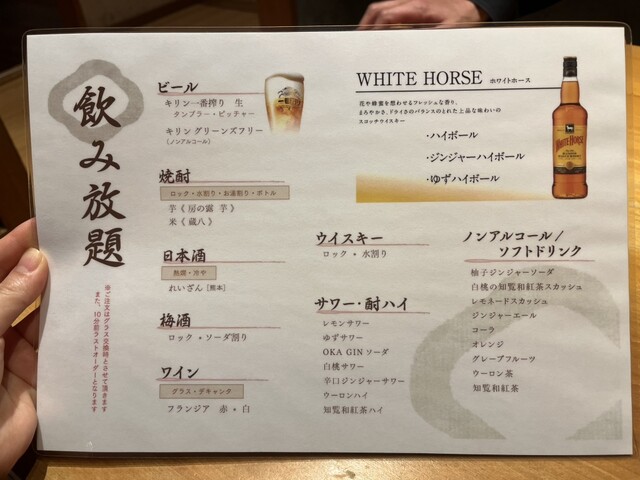 飲み放題
※ご注文はグラス交換時とさせて頂きます
また、10分前ラストオーダーとなります
ビール
キリン一番搾り 生
タンブラー・ピッチャー
キリン グリーンズフリー
(ノンアルコール)
焼酎
ロック・水割り・お湯割り・ボトル
芋《 房の露 芋 》
米《 蔵八 》
日本酒
熱燗・冷や
れいざん [熊本]
梅酒
ロック・ソーダ割り
ワイン
グラス・デキャンタ
フランジア 赤・白
WHITE HORSE ホワイトホース
花や蜂蜜を想わせるフレッシュな香り。
まろやかさ、ドライさのバランスのとれた上品な味わいの
スコッチウイスキー
・ハイボール
・ジンジャーハイボール
・ゆずハイボール
WHITE HORSE
ウイスキー
ロック・水割り
サワー・酎ハイ
レモンサワー
ゆずサワー
OKA GINソーダ
白桃サワー
辛口ジンジャーサワー
ウーロンハイ
知覧和紅茶ハイ
ノンアルコール/
ソフトドリンク
柚子ジンジャーソーダ
白桃の知覧和紅茶スカッシュ
レモネードスカッシュ
ジンジャーエール
コーラ
オレンジ
グレープフルーツ
ウーロン茶
知覧和紅茶